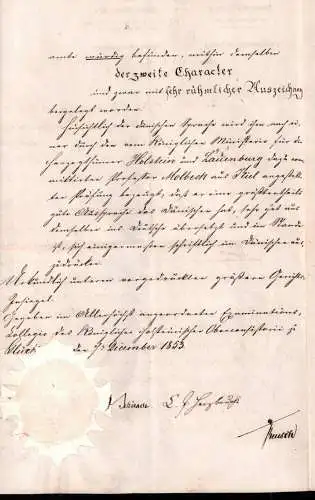 amte würdig befunden, mithin demselben
der zweite Character
und zwar mit sehr rühmlicher Auszeichnung
beygelegt worden.
Hinsichtlich der dänischen Sprache wird ihm nach ei-
ner durch den vom Königlichen Ministerio für die
Herzogthümer Holstein und Lauenburg dazu com-
mittirten Professor Molbech aus Kiel angestell-
ten Prüfung bezeugt, daß er eine größtentheils
gute Aussprache des Dänischen hat, sehr gut aus
demselben ins Deutsche übersetzt und im Stande
ist, sich einigermaßen schriftlich im Dänischen aus-
zudrücken.
Urkundlich unterm vorgedruckten größeren Gerichts-
Insiegel.
Gegeben im Allerhöchst angeordneten Examinations-
Collegio des Königlichen holsteinischen Oberconsistorii zu
den 7. December 1853.